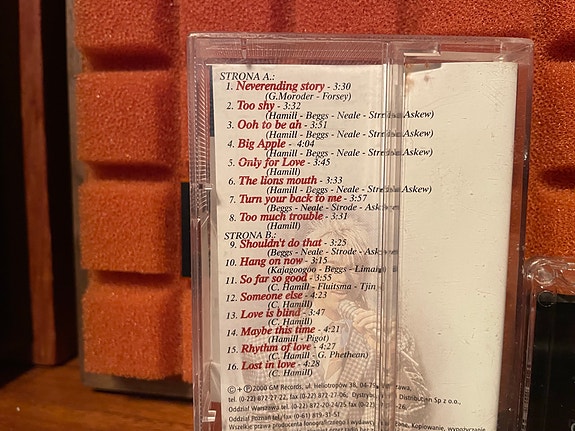 STRONA A.:
1. Neverending story - 3:30
(G.Moroder - Forsey)
2. Too shy - 3:32
(Hamill - Beggs - Neale - Strode - Askew)
3. Ooh to be ah - 3:51
(Hamill - Beggs - Neale - Strode - Askew)
4. Big Apple - 4:04
(Hamill - Beggs - Neale - Strode - Askew)
5. Only for Love - 3:45
(Hamill)
6. The lions mouth - 3:33
(Hamill - Beggs - Neale - Strode - Askew)
7. Turn your back to me - 3:57
(Beggs - Neale - Strode - Askew)
8. Too much trouble - 3:31
(Hamill)
STRONA B.:
9. Shouldn't do that - 3:25
(Beggs - Neale - Strode - Askew)
10. Hang on now - 3:15
(Kajagoogoo - Beggs - Limahl)
11. So far so good - 3:55
(C. Hamill - Fluitsma - Tjin
12. Someone else - 4:23
(C. Hamill)
13. Love is blind - 3:47
(C. Hamill)
14. Maybe this time - 4:21
(Hamill - Pigot)
15. Rhythm of love - 4:27
(C. Hamill - G. Phethean)
16. Lost in love - 4:28
(C. Hamill)
© + ℗ 2000 GM Records, ul. Heliotropów 38, 04-79 Warszawa,
tel. (0-22) 872-27-22, fax (0-22) 872-27-06, Distribution Sp z o.o.,
Oddział Warszawa tel. (0-22) 872-20-24/25 fax (0-22)
Oddział Poznań tel./fax (0-61) 819-31-51
Wszelkie prawa producenta fonograficznego i Kopiowanie, wypożyczanie